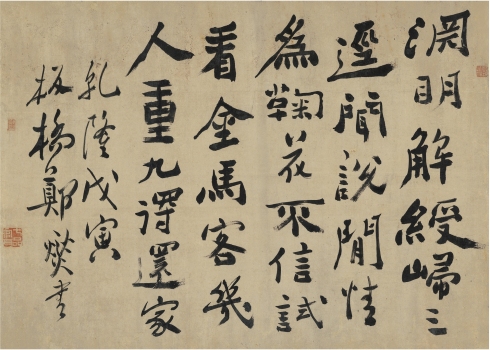 淵明解綬歸三
逕聞說閒情
為鞠花不信試
看金馬客幾
人重九得還家
乾隆戊寅
板橋鄭燮書